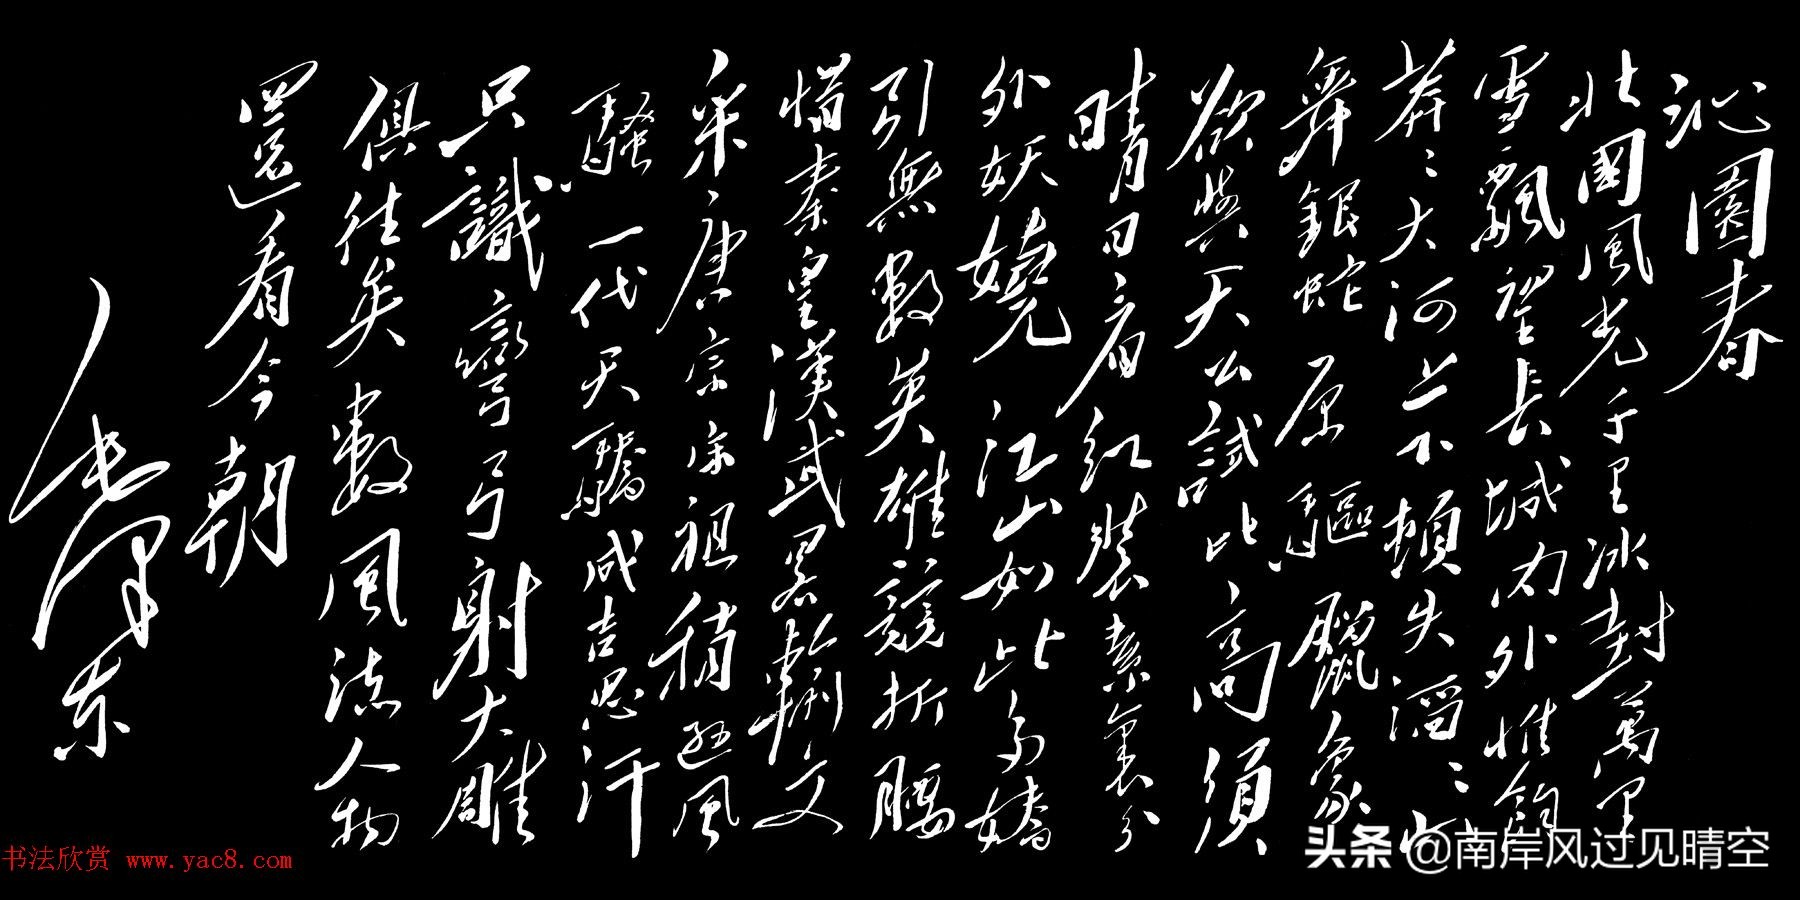 沁園春
北國風光千里冰封萬里
雪飄望長城內外惟餘
莽々大河上下頓失滔々山
舞銀蛇原驅臘象
欲與天公試比高須
晴日看紅裝素裹分
外妖嬈江山如此多嬌
引無數英雄競折腰
惜秦皇漢武略輸文
采唐宗宋祖稍遜風
騷一代天驕成吉思汗
只識彎弓射大雕
俱往矣數風流人物
還看今朝
毛澤東
书法欣赏 www.yac8.com
头条 @南岸风过见晴空